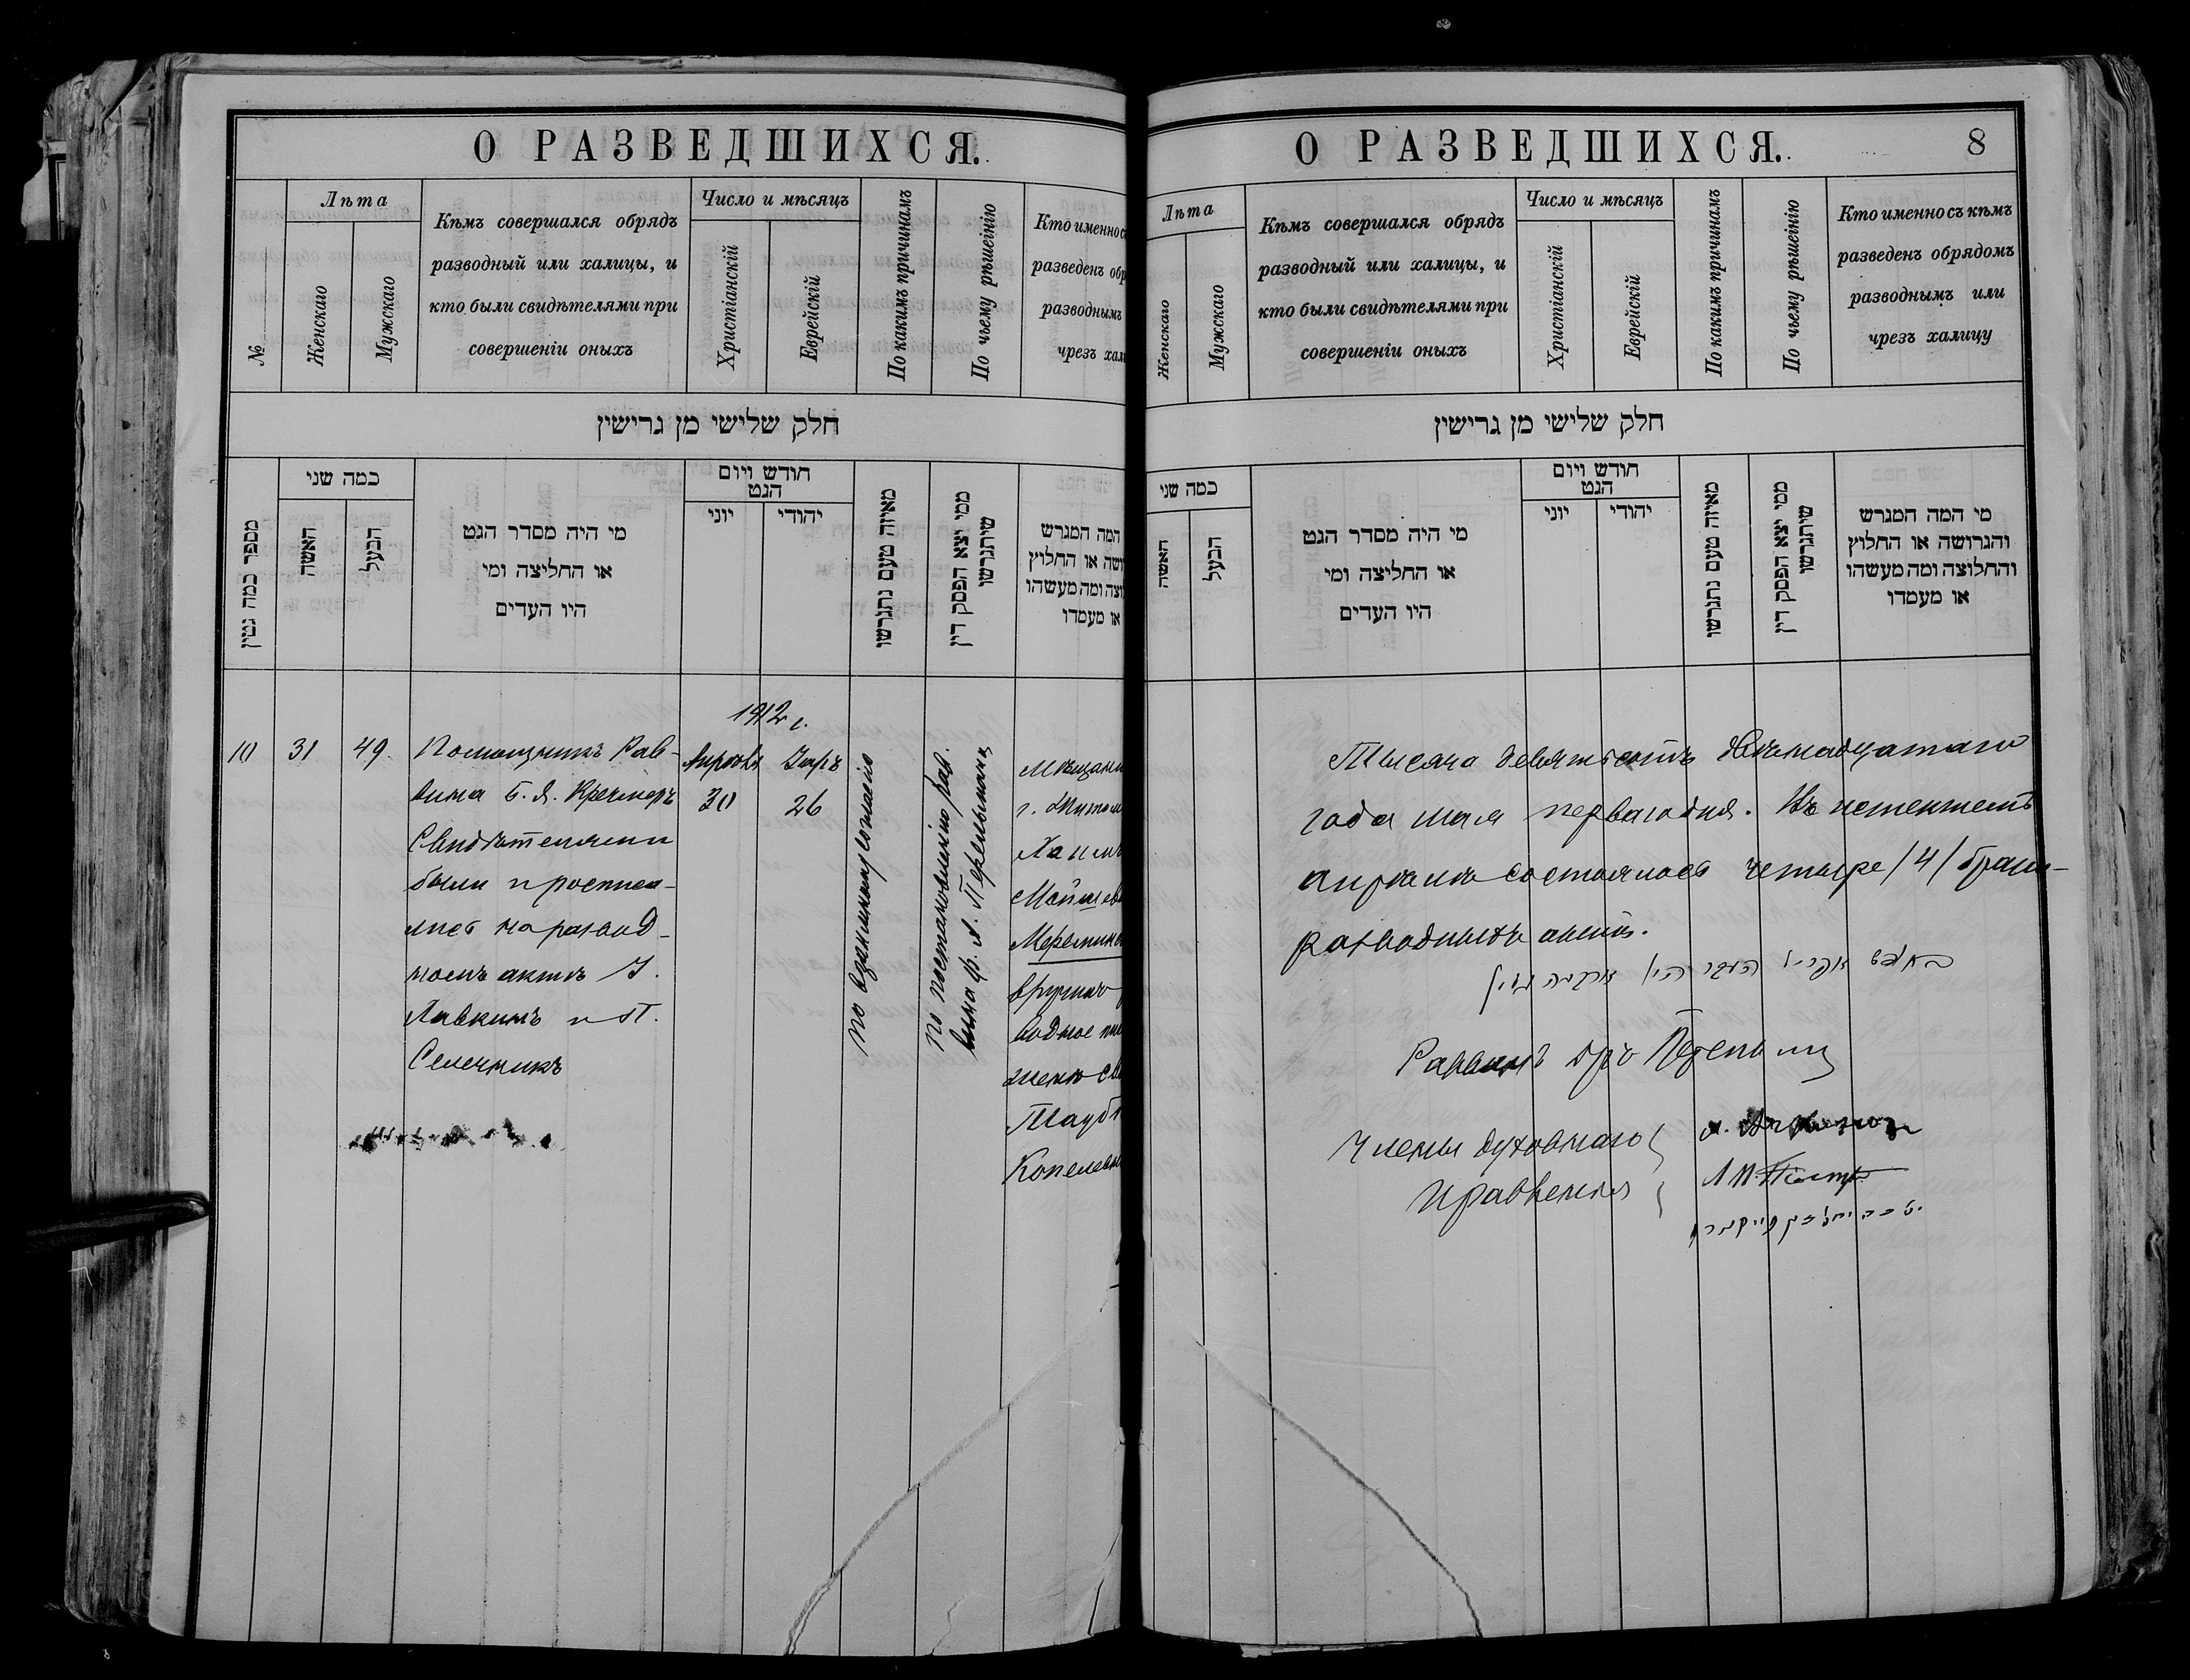 О РАЗВЕДШИХСЯ.
№
Лѣта
Женскаго
Мужскаго
Кѣмъ совершался обрядъ
разводный или халицы, и
кто были свидѣтелями при
совершеніи оныхъ
Число и мѣсяцъ
Христіанскій
Еврейскій
По какимъ причинамъ
По чьему рѣшенію
Кто именно с
разведенъ обр
разводнымъ
чрезъ хал
חלק שלישי מן גרישין
מספר כמה גטין
כמה שני
האשה
הבעל
מי היה מסדר הגט
או החליצה ומי
היו העדים
חודש ויום
הגט
יוני
יהודי
מאיזה טעם נתגרשו
ממי יצא הפסק דין
שיתגרשו
המה המגרש
ושה או החלוץ
וצה ומה מעשהו
או מעמדו
1912 г.
10
31
49.
Помощникъ Рав-
вина Б. Я. Кречмеръ
Свидѣтелями
были и росписа-
лись на развод-
номъ актѣ
Лавкинъ и П.
Селечникъ
Апрѣля
30
Іаръ
26
По взаимному согласію
По постановленію рав.
вина Ф. А. Перельманъ
Мѣщани
г. Житом
Хаимъ
Мойшев
вручилъ
водное пи
женѣ св
Тауб
Копелев
О РАЗВЕДШИХСЯ.
8
Лѣта
Женскаго
Мужскаго
Кѣмъ совершался обрядъ
разводный или халицы, и
кто были свидѣтелями при
совершеніи оныхъ
Число и мѣсяцъ
Христіанскій
Еврейскій
По какимъ причинамъ
По чьему рѣшенію
Кто именно съ кѣмъ
разведенъ обрядомъ
разводнымъ или
чрезъ халицу
חלק שלישי מן גרישין
כמה שני
האשה
הבעל
מי היה מסדר הגט
או החליצה ומי
היו העדים
חודש ויום
הגט
יוני
יהודי
מאיזה טעם נתגרשו
ממי יצא הפסק דין
שיתגרשו
מי המה המגרש
והגרושה או החלוץ
והחלוצה ומה מעשהו
או מעמדו
Тысяча девятьсотъ двѣнадцатаго
года мая перваго дня. Въ истекшемъ
апрѣлѣ состоялось четыре /4/ брако-
разводныхъ актъ.
Раввинъ
Члены духовнаго
правленія